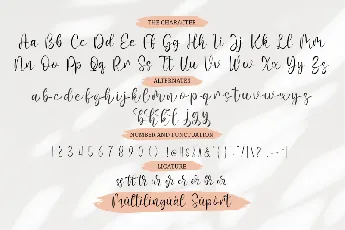 THE CHARACTER
Aa Bb Cc Dd Ee Ff Gg Hh Ii Jj Kk Ll Mm
Nn Oo Pp Qq Rr Ss Tt Uu Vv Ww Xx Yy Zz
ALTERNATES
a b c d e f g h i j k l m n o p q r s t u v w x y z
NUMBER AND PUNCTUATION
1 2 3 4 5 6 7 8 9 0
LIGATURE
Multilingual Suport